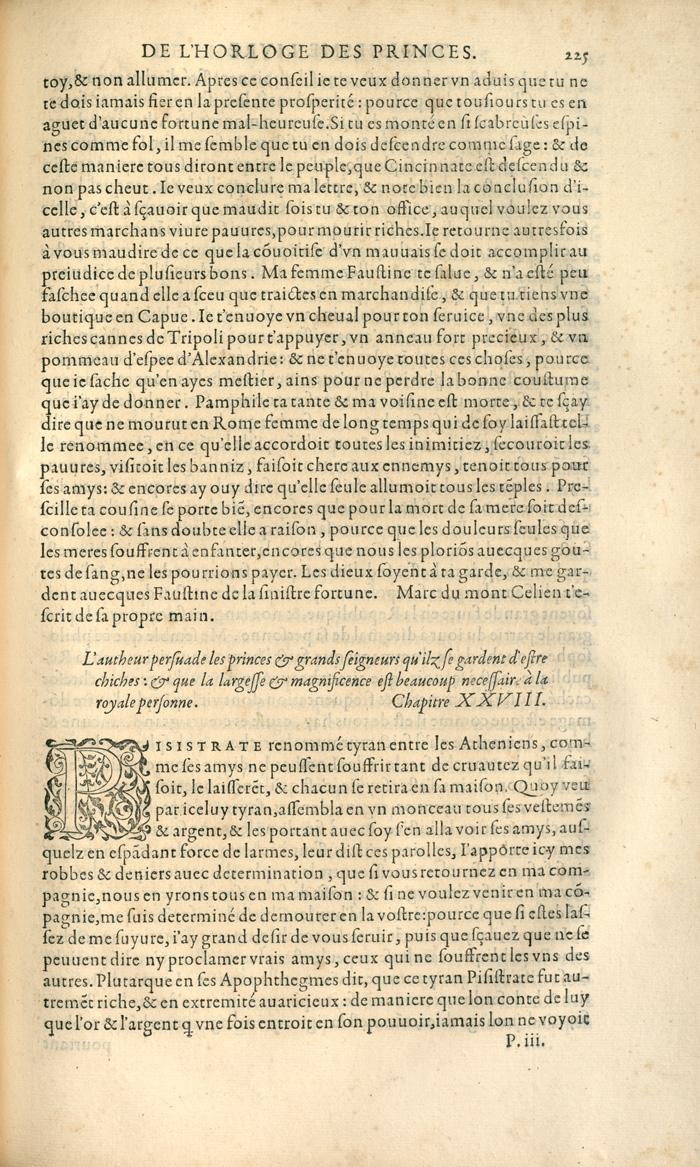 DE L'HORLOGE DES PRINCES. 225
toy,& non allumer. Apres ce conſeil ie te veux donner vn aduis que tu ne
te dois iamais fier en la preſente proſperité : pource que touſiours tu es en
aguet d'aucune fortune mal-heureuſe.Si tu es monté en ſi ſcabreuſes eſpi-
nes comme fol, il me ſemble que tu en dois deſcendre comme ſage : & de
ceſte maniere tous diront entre le peuple,que Cincinnate eſt deſcendu &
non pas cheut. Ie veux conclure ma lettre, & note bien la concluſion d'i-
celle, c'eſt à ſçauoir que maudit ſois tu & ton office, auquel voulez vous
autres marchans viure pauures,pour mourir riches.Ie retourne autresfois
à vous maudire de ce que la cōuoitiſe d'vn mauuais ſe doit accomplir au
preiudice de pluſieurs bons. Ma femme Fauſtine te ſalue, & n'a eſté peu
faſchee quand elle a ſceu que traictes en marchandiſe, & que tu tiens vne
boutique en Capue. Ie t'enuoye vn cheual pour ton ſeruice, vne des plus
riches cannes de Tripoli pour t'appuyer, vn anneau fort precieux, & vn
pommeau d'eſpee d'Alexandrie: & ne t'enuoye toutes ces choſes, pource
que ie ſache qu'en ayes meſtier, ains pour ne perdre la bonne couſtume
que i'ay de donner. Pamphile ta tante & ma voiſine eſt morte, & te ſçay
dire que ne mourut en Rome femme de long temps qui de ſoy laiſſaſt tel-
le renommee, en ce qu'elle accordoit toutes les inimitiez, ſecouroit les
pauures, viſitoit les banniz, faiſoit chere aux ennemys, tenoit tous pour
ſes amys: & encores ay ouy dire qu'elle ſeule allumoit tous les tēples. Pre-
ſcille ta couſine ſe porte biē, encores que pour la mort de ſa mere ſoit deſ-
conſolee : & ſans doubte elle a raiſon, pource que les douleurs ſeules que
les meres ſouffrent à enfanter,encores que nous les ploriōs auecques gou-
tes de ſang,ne les pourrions payer. Les dieux ſoyent à ta garde, & me gar-
dent auecques Fauſtine de la ſiniſtre fortune. Marc du mont Celien t'e-
ſcrit de ſa propre main.
L'autheur perſuade les princes & grands ſeigneurs qu'ilz ſe gardent d'eſtre
chiches : & que la largeſſe & magnificence eſt beaucoup neceſſaire à la
royale perſonne. Chapitre XXVIII.
PISISTRATE renommé tyran entre les Atheniens, com-
me ſes amys ne peuſſent ſouffrir tant de cruautez qu'il fai-
ſoit, le laiſſerēt, & chacun ſe retira en ſa maiſon. Quoy veu
par iceluy tyran,aſſembla en vn monceau tous ſes veſtemēs
& argent, & les portant auec ſoy ſ'en alla voir ſes amys, auſ-
quelz en eſpādant force de larmes, leur diſt ces parolles, I'apporte icy mes
robbes & deniers auec determination, que ſi vous retournez en ma com-
pagnie,nous en yrons tous en ma maiſon : & ſi ne voulez venir en ma cō-
pagnie,me ſuis determiné de demourer en la voſtre:pource que ſi eſtes laſ-
ſez de me ſuyure, i'ay grand deſir de vous ſeruir, puis que ſçauez que ne ſe
peuuent dire ny proclamer vrais amys, ceux qui ne ſouffrent les vns des
autres. Plutarque en ſes Apophthegmes dit, que ce tyran Piſiſtrate fut au-
tremēt riche,& en extremité auaricieux : de maniere que lon conte de luy
que l'or & l'argent q̨ vne fois entroit en ſon pouuoir,iamais lon ne voyoit
P. iii.